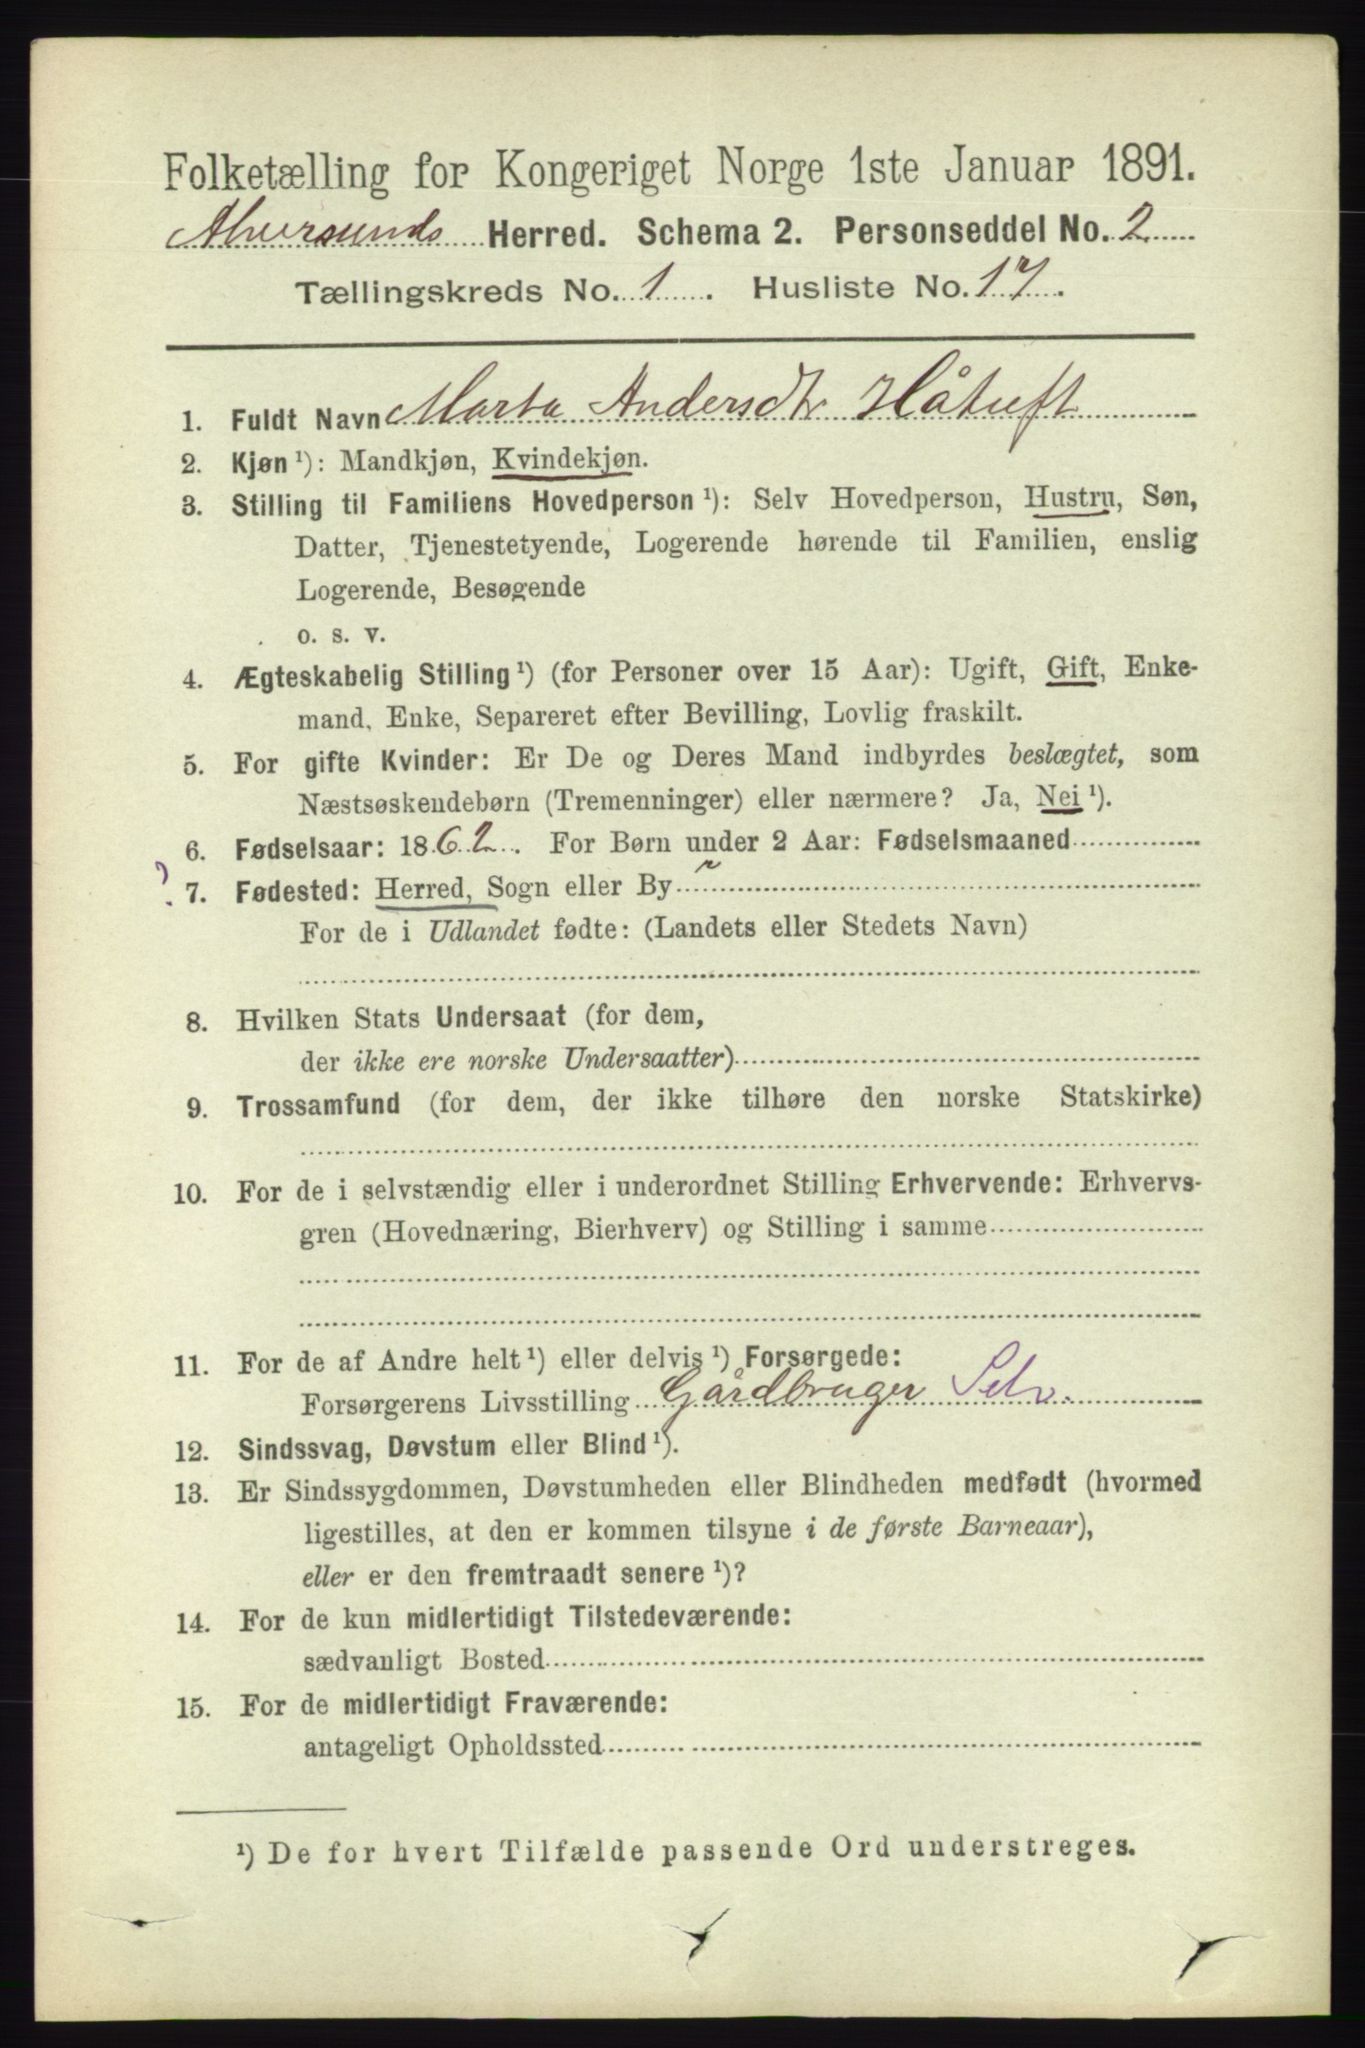 Folketælling for Kongeriget Norge 1ste Januar 1891.
Alversunds Herred. Schema 2. Personseddel No. 2
Tællingskreds No. 1. Husliste No. 17.
1. Fuldt Navn Marta Andersdtr Håtuft
2. Kjøn ¹): Mandkjøn, Kvindekjøn.
3. Stilling til Familiens Hovedperson ¹): Selv Hovedperson, Hustru, Søn,
Datter, Tjenestetyende, Logerende hørende til Familien, enslig
Logerende, Besøgende
o. s. v.
4. Ægteskabelig Stilling ¹) (for Personer over 15 Aar): Ugift, Gift, Enke-
mand, Enke, Separeret efter Bevilling, Lovlig fraskilt.
5. For gifte Kvinder: Er De og Deres Mand indbyrdes beslægtet, som
Næstsøskendebørn (Tremenninger) eller nærmere? Ja, Nei ¹).
6. Fødselsaar: 1862. For Børn under 2 Aar: Fødselsmaaned
? 7. Fødested: Herred, Sogn eller By ~
For de i Udlandet fødte: (Landets eller Stedets Navn)
8. Hvilken Stats Undersaat (for dem,
der ikke ere norske Undersaatter)
9. Trossamfund (for dem, der ikke tilhøre den norske Statskirke)
10. For de i selvstændig eller i underordnet Stilling Erhvervende: Erhvervs-
gren (Hovednæring, Bierhverv) og Stilling i samme
11. For de af Andre helt ¹) eller delvis ¹) Forsørgede:
Forsørgerens Livsstilling Gårdbruger Selv.
12. Sindssvag, Døvstum eller Blind ¹).
13. Er Sindssygdommen, Døvstumheden eller Blindheden medfødt (hvormed
ligestilles, at den er kommen tilsyne i de første Barneaar),
eller er den fremtraadt senere ¹)?
14. For de kun midlertidigt Tilstedeværende:
sædvanligt Bosted
15. For de midlertidigt Fraværende:
antageligt Opholdssted
¹) De for hvert Tilfælde passende Ord understreges.